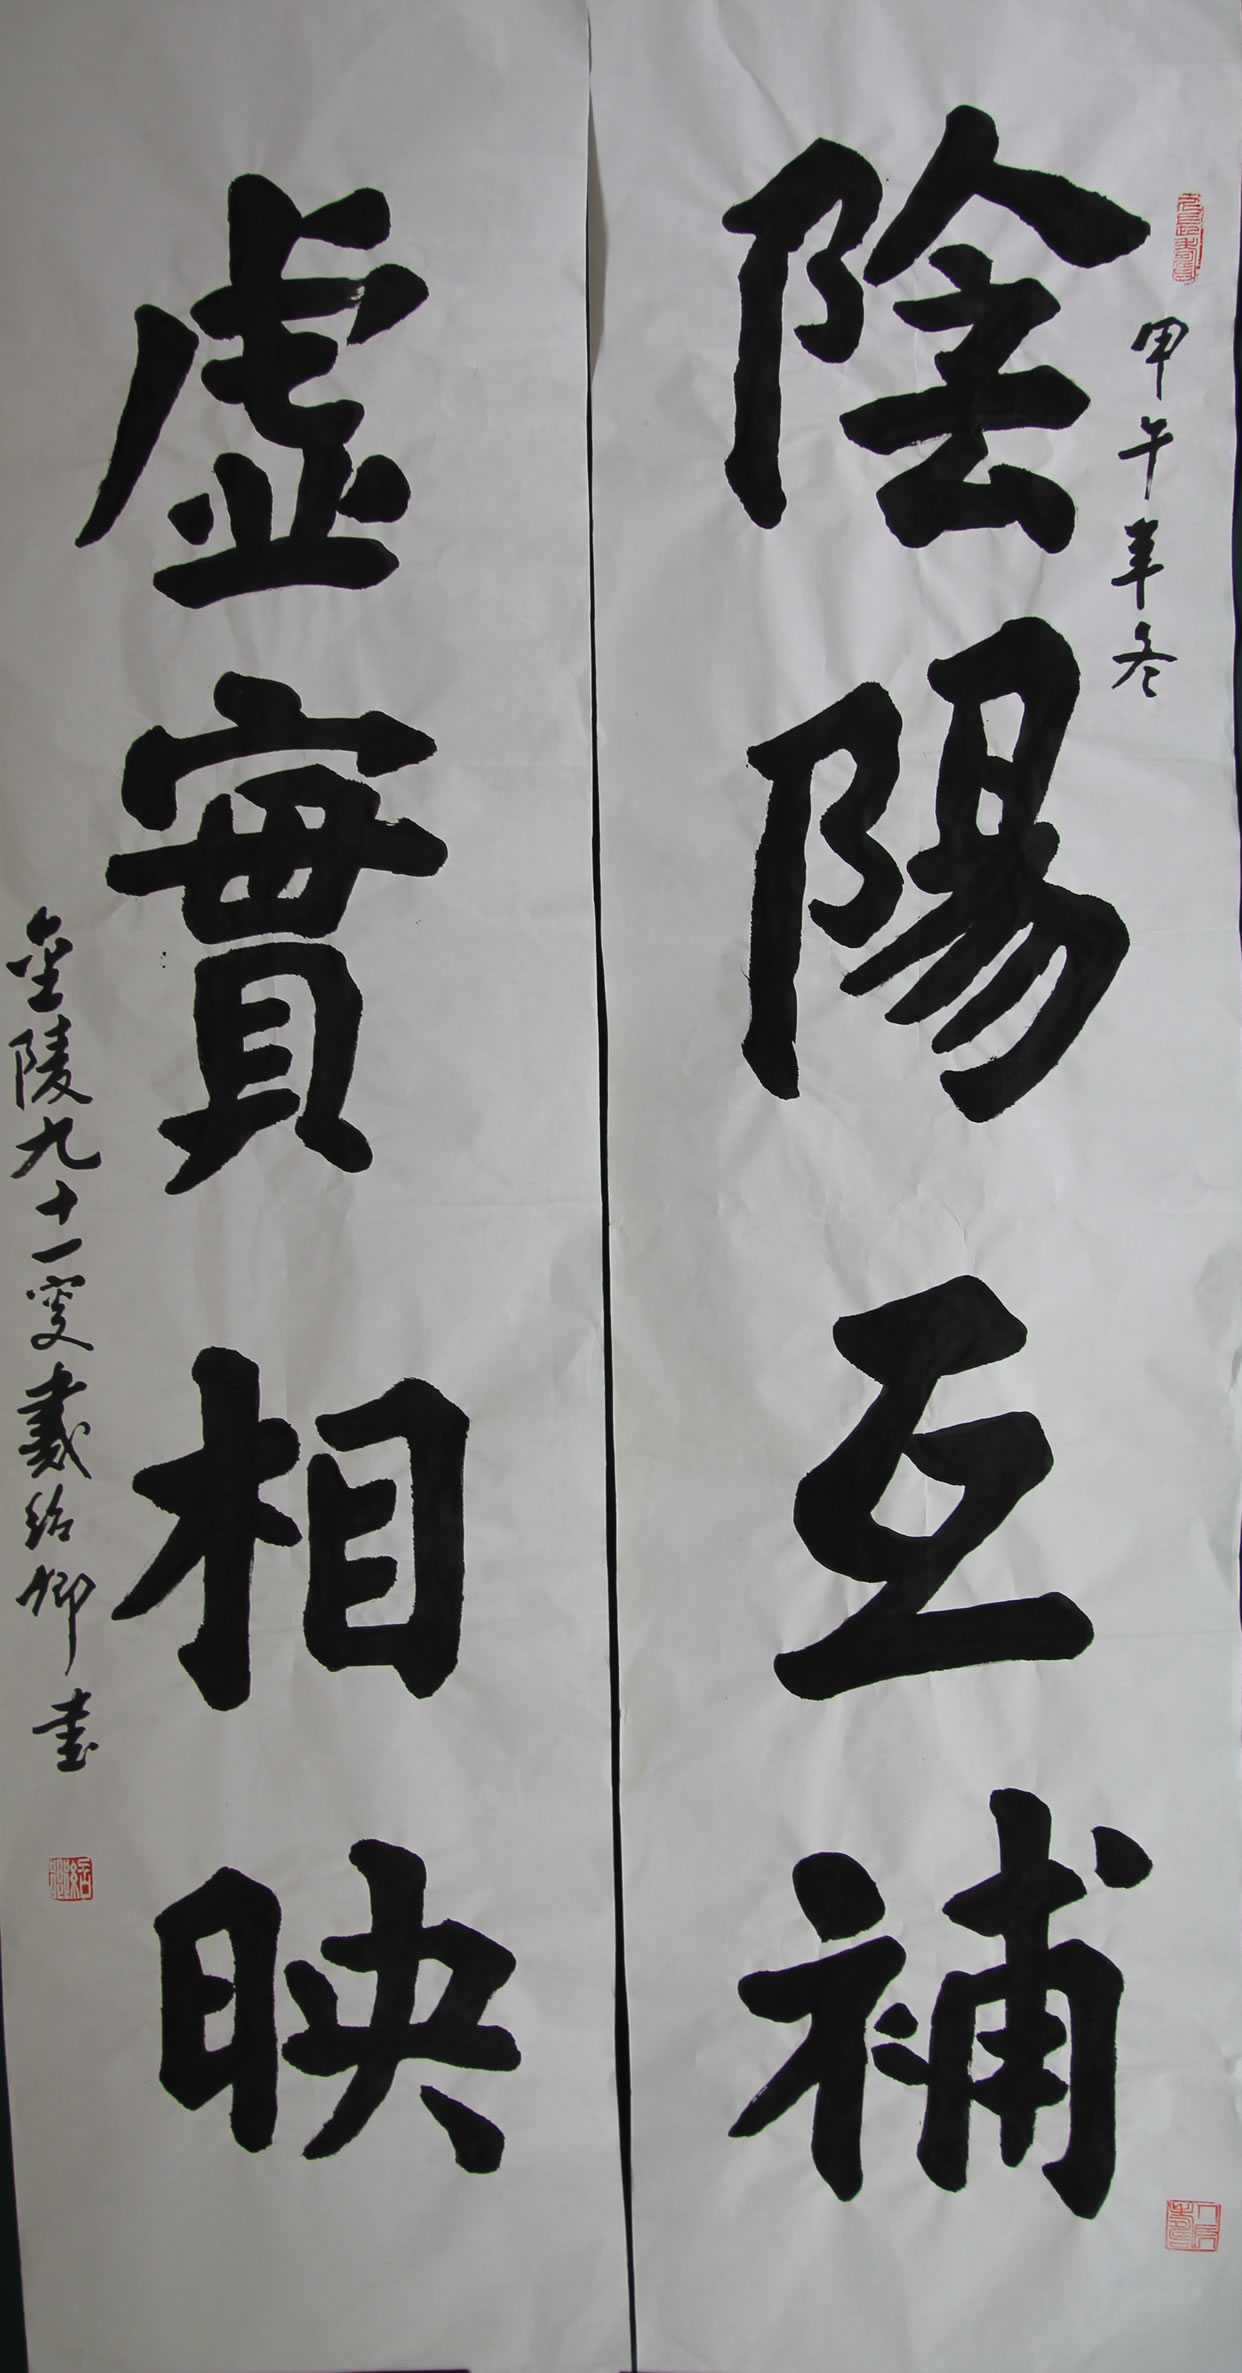 甲午年冬
陰陽互補
虛實相映
金陵九十一叟戴紹卿書